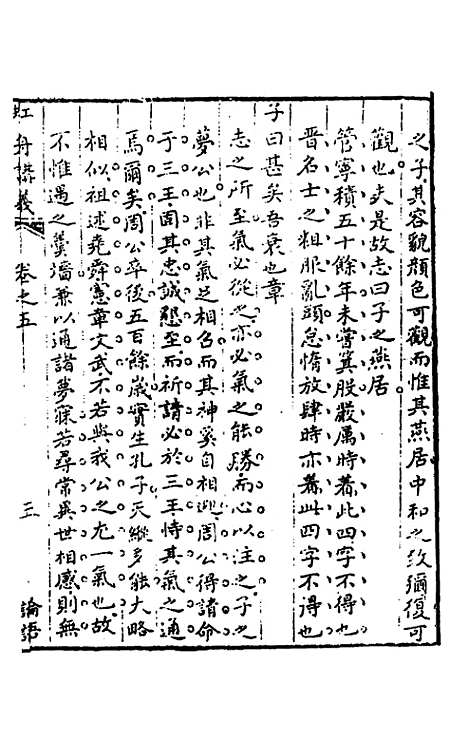 之子其容貌顏色可觀而惟其燕居中和之致彌復可
觀也夫是故志曰子之燕居
管寧積五十餘年未嘗箕股嚴厲時着此四字不得也
晉名士之粗服亂頭怠惰放肆時亦着此四字不得也
子曰甚矣吾衰也章
志之所至氣必從之亦必氣之能勝而心以注之子之
夢公也非其氣足相召而其神奚自相迎周公得請命
于三王固其忠誠懇至而祈請必於三王恃其氣之通
焉爾矣周公卒後五百餘歲實生孔子天縱多能大畧
相似祖述堯舜憲章文武不若與我公之尤一氣也故
不惟遇之羹墻兼以通諸夢寐若尋常異世相感則無
虹舟講義 卷之五 三 論語